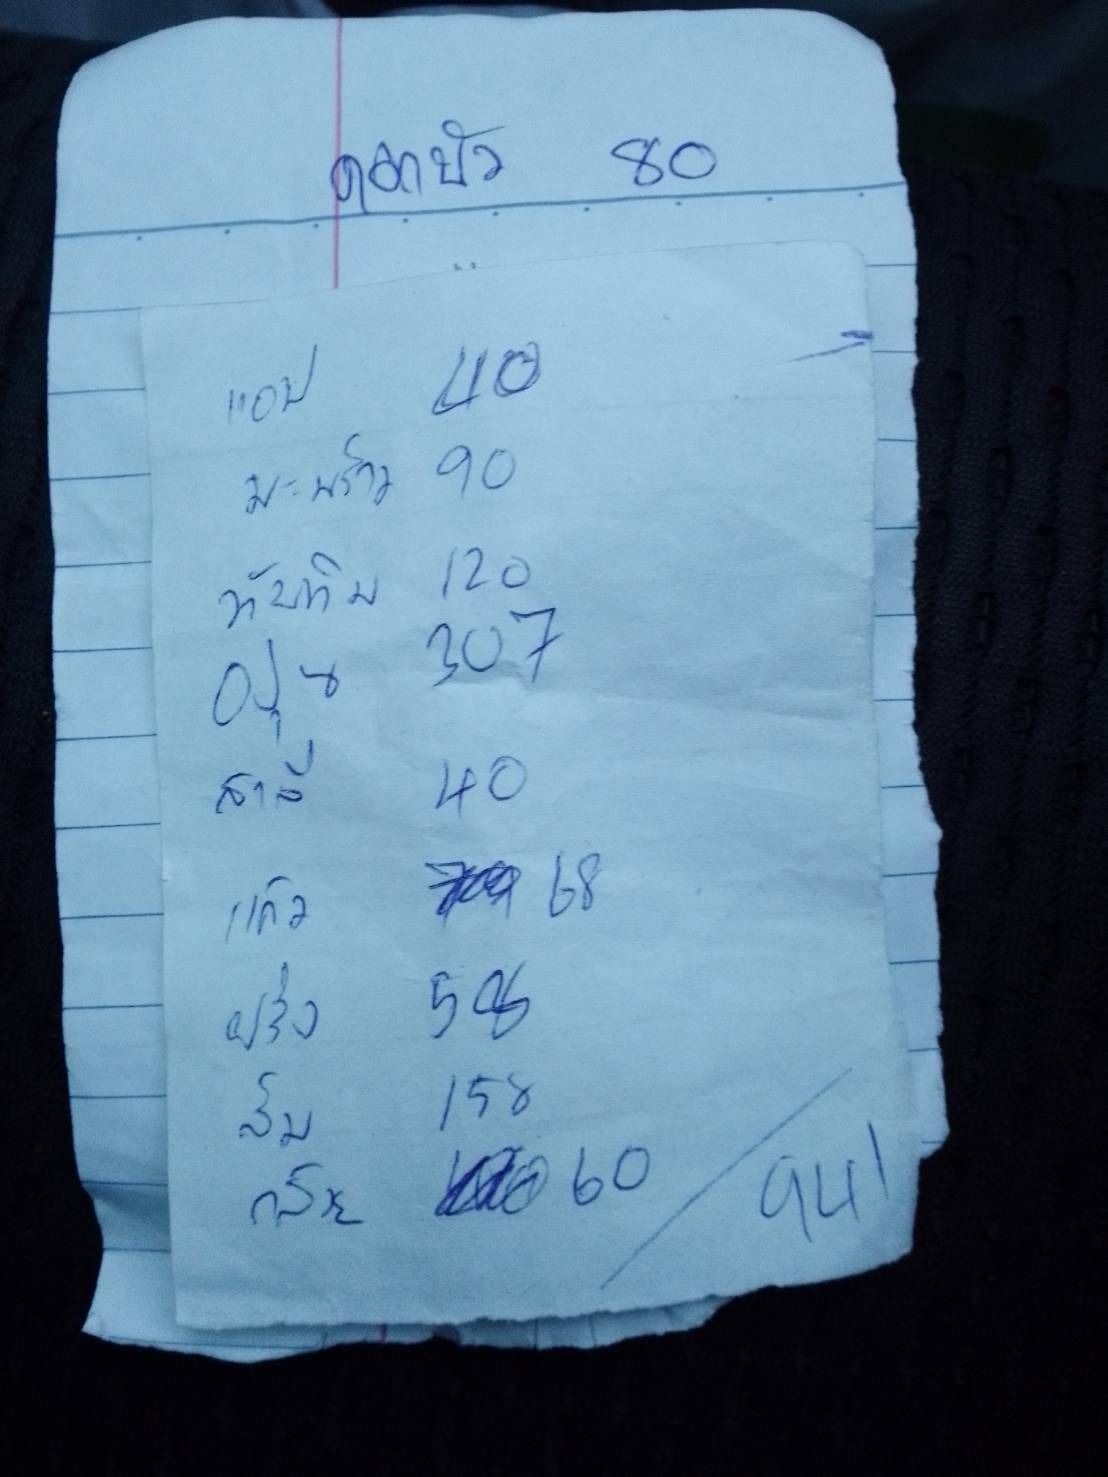 ดอกบัว 80
แอป 40
มะพร้าว 90
ทับทิม 120
องุ่น 307
สาลี่ 40
แก้ว 68
ฝรั่ง 58
ส้ม 158
กล้วย 60
941